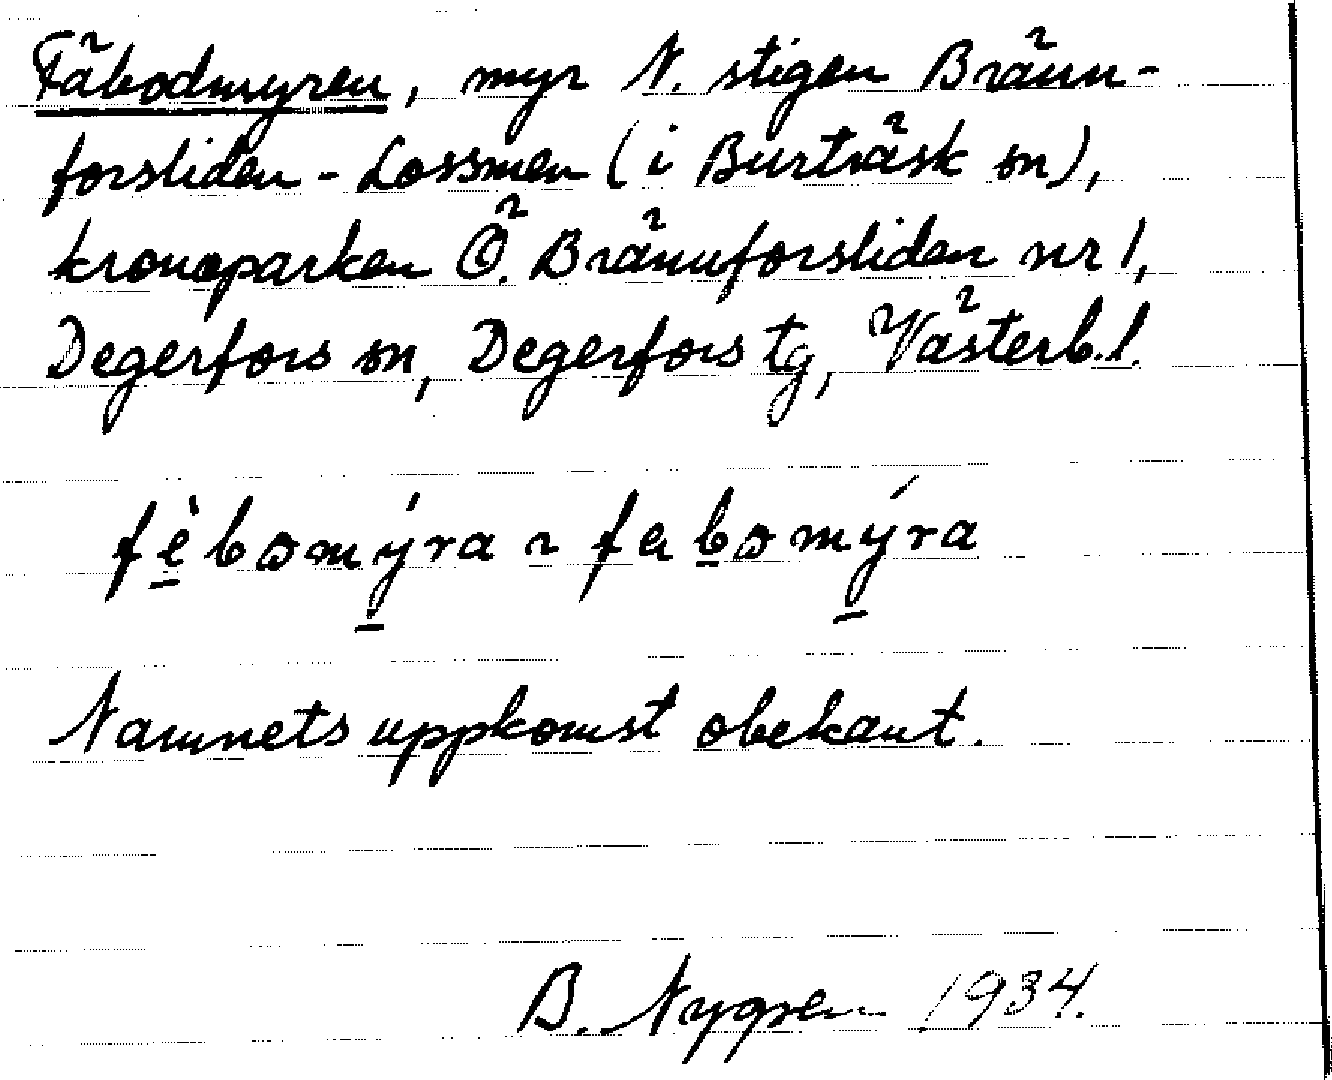 Fäbodmyren, myr N. stigen Bränn-
forsliden - Lossmen (i Burträsk sn),
kronoparken Ö. Brännforsliden nr 1,
Degerfors sn, Degerfors tg, Västerb.l.
fè̱bωmý̱ra ~ feḇωmý̱ra
Namnets uppkomst obekant.
B. Nygren 1934.